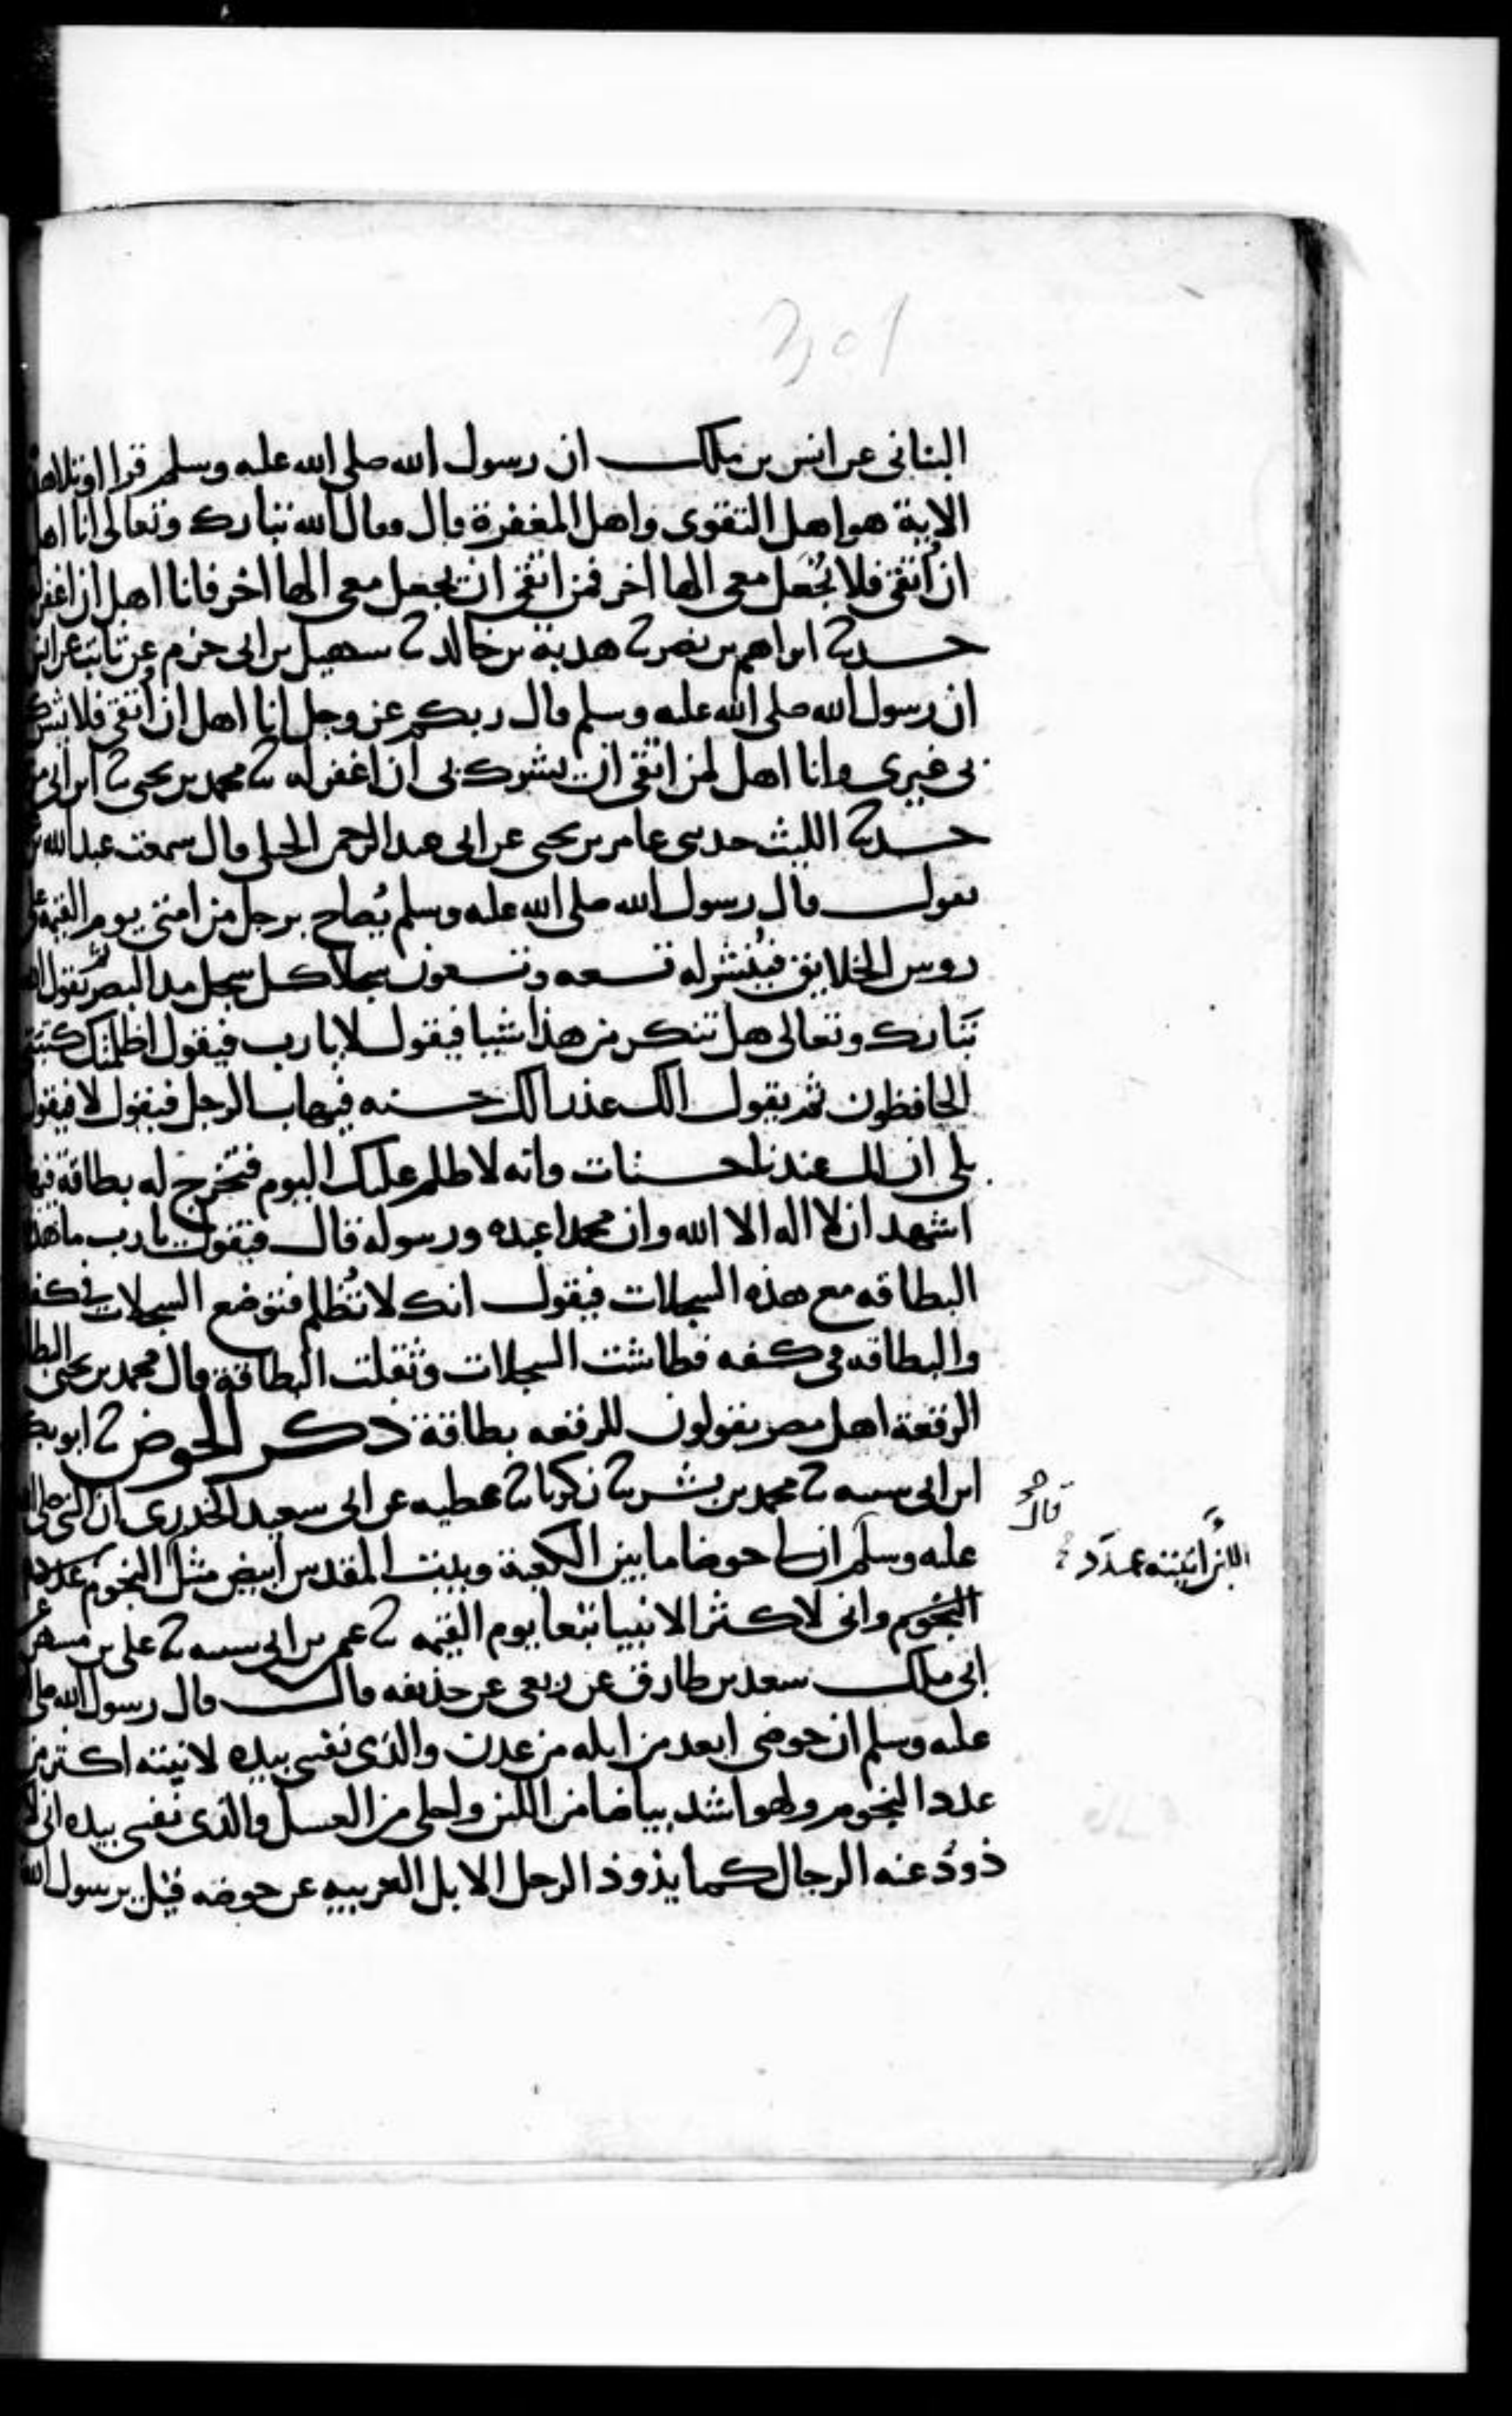 301
البناني عن انس بن ملك ان رسول الله صلى الله عليه وسلم قرا اوتلا هذ
الاية هو اهل التقوى واهل المغفرة قال فقال الله تبارك وتعالى انا اهل
ان أتقى فلا يُجعل معى الها اخر فمن اتقى ان يجعل معى الها اخر فانا اهل ان اغفر له
حدثنا ابراهيم بن نصر ثنا هدبة بن خالد ثنا سهيل بن ابى حزم عن ثابت عن انس
ان رسول الله صلى الله عليه وسلم قال ربكم عز وجل انا اهل ان أتقى فلا يشرك
بى غيرى وانا اهل لمن اتقى ان يشرك بى ان اغفر له ثنا محمد بن يحيى ثنا ابن ابى
حدثنا الليث حدثنى عامر بن يحيى عن ابى عبد الرحمن الحبلى قال سمعت عبد الله
يقول قال رسول الله صلى الله عليه وسلم يُصاح برجل من امتى يوم القيمة على
روس الخلايق فيُنشر له تسعه وتسعون سجلا كل سجل مد البصر ثم يقول الله
تبارك وتعالى هل تنكر من هذا شيا فيقول لا يا رب فيقول اظلمتك كتبتى
الحافظون ثم يقول الك عذر الك حسنه فيهاب الرجل فيقول لا فيقول
بلى ان لك عندنا حسنات وانه لا ظلم عليك اليوم فتخرج له بطاقة فيها
اشهد ان لا اله الا الله وان محمدا عبده ورسوله قال فيقول يا رب ما هذه
البطاقه مع هذه السجلات فيقول انك لا تُظلم فتوضع السجلات فى كفه
والبطاقه فى كفه فطاشت السجلات وثقلت البطاقة قال محمد بن يحيى البطا
الرقعة اهل مصر يقولون للرقعه بطاقة ذكر الحوض ثنا ابو بكر
ابن ابى شيبه ثنا محمد بن بشر ثنا زكريا ثنا عطيه عن ابى سعيد الخدرى ان النبى صلى الله
عليه وسلم ان لى حوضا ما بين الكعبة وبيت المقدس ابيض مثل النجوم عدد
النجوم وانى لاكثر الانبيا تبعا يوم القيمه ثنا عثمن بن ابى شيبه ثنا على بن مسهر عن
ابى ملك سعد بن طارق عن ربعى عن حذيفه قال قال رسول الله صلى
عليه وسلم ان حوضى ابعد من ايله من عدن والذى نفسى بيده لانيته اكثر من
عدد النجوم ولهو اشد بياضا من اللبن واحلى من العسل والذى نفسى بيده انى
ذودُ عنه الرجال كما يذوذ الرجل الابل الغريبه عن حوضه قيل يرسول الله
قال
اللبن انيته عدد